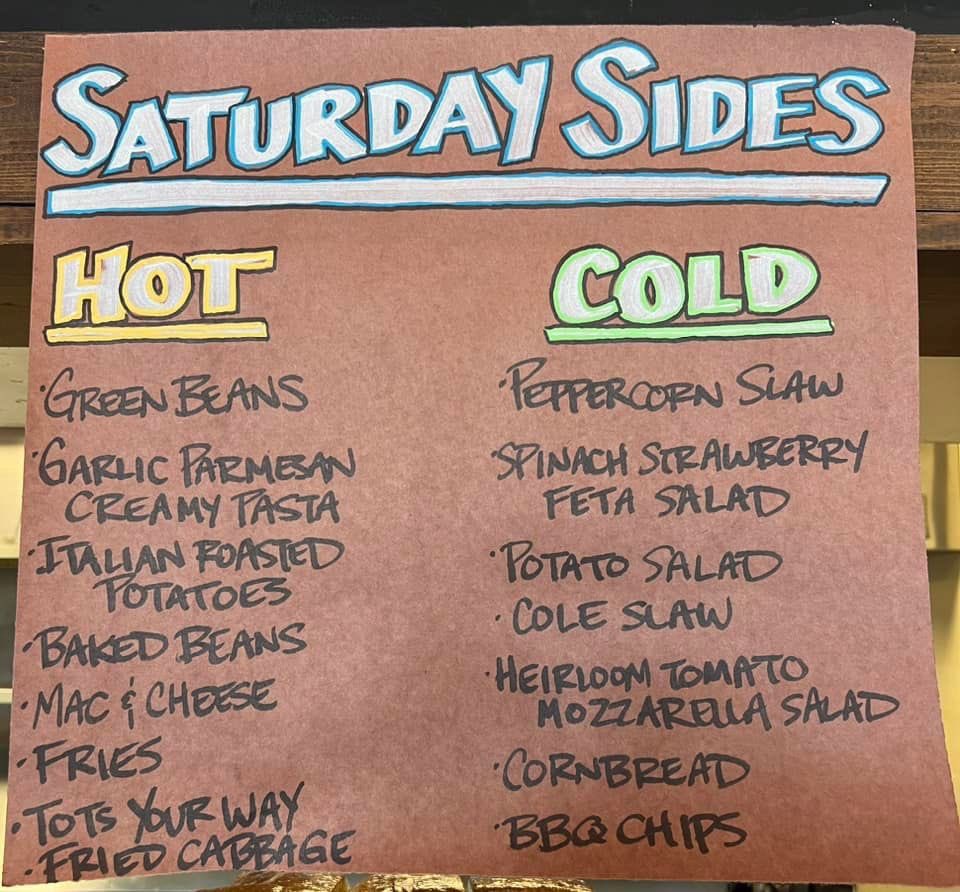 SATURDAY SIDES
HOT
·GREEN BEANS
·GARLIC PARMESAN
CREAMY PASTA
·ITALIAN ROASTED
POTATOES
·BAKED BEANS
·MAC & CHEESE
·FRIES
·TOTS YOUR WAY
·FRIED CABBAGE
COLD
·PEPPERCORN SLAW
·SPINACH STRAWBERRY
FETA SALAD
·POTATO SALAD
·COLE SLAW
·HEIRLOOM TOMATO
MOZZARELLA SALAD
·CORNBREAD
·BBQ CHIPS